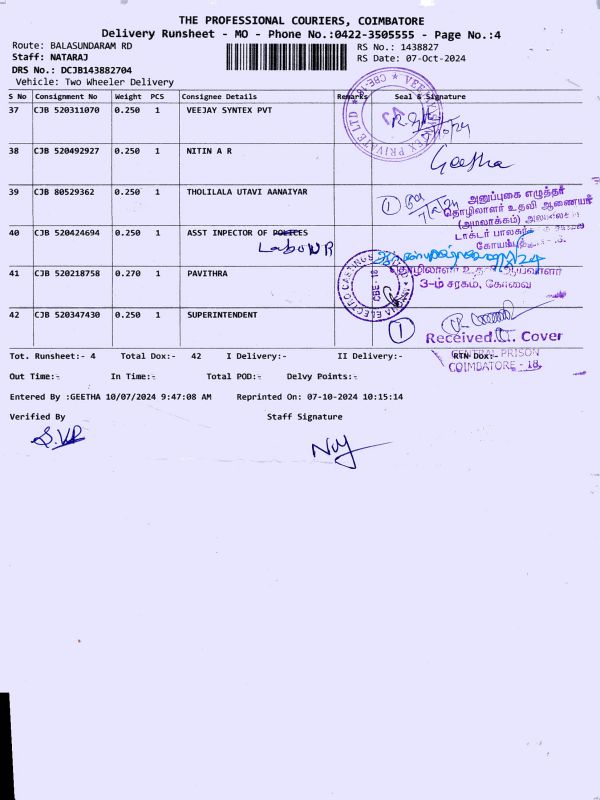 THE PROFESSIONAL COURIERS, COIMBATORE
Delivery Runsheet - MO - Phone No.:0422-3505555 - Page No.:4
Route: BALASUNDARAM RD
RS No.: 1438827
Staff: NATARAJ
RS Date: 07-Oct-2024
DRS No.: DCJB143882704
Vehicle: Two Wheeler Delivery
S No Consignment No Weight PCS Consignee Details Remarks Seal & Signature
37 CJB 520311070 0.250 1 VEEJAY SYNTEX PVT
38 CJB 520492927 0.250 1 NITIN A R
Geetha
39 CJB 80529362 0.250 1 THOLILALA UTAVI AANAIYAR
1
அனுப்புகை எழுத்தர்
தொழிலாளர் உதவி ஆணையர்
(அமலாக்கம்)
டாக்டர்
40 CJB 520424694 0.250 1 ASST INPECTOR OF POLICES
LaboUR
41 CJB 520218758 0.270 1 PAVITHRA
CBE - 18
3-ம் சரகம், கோவை
42 CJB 520347430 0.250 1 SUPERINTENDENT
1
Received Cover
CENTRAL PRISON
COIMBATORE - 18.
Tot. Runsheet:- 4 Total Dox:- 42 I Delivery:- II Delivery:- RTN Dox:-
Out Time:- In Time:- Total POD:- Delvy Points:-
Entered By :GEETHA 10/07/2024 9:47:08 AM Reprinted On: 07-10-2024 10:15:14
Verified By Staff Signature